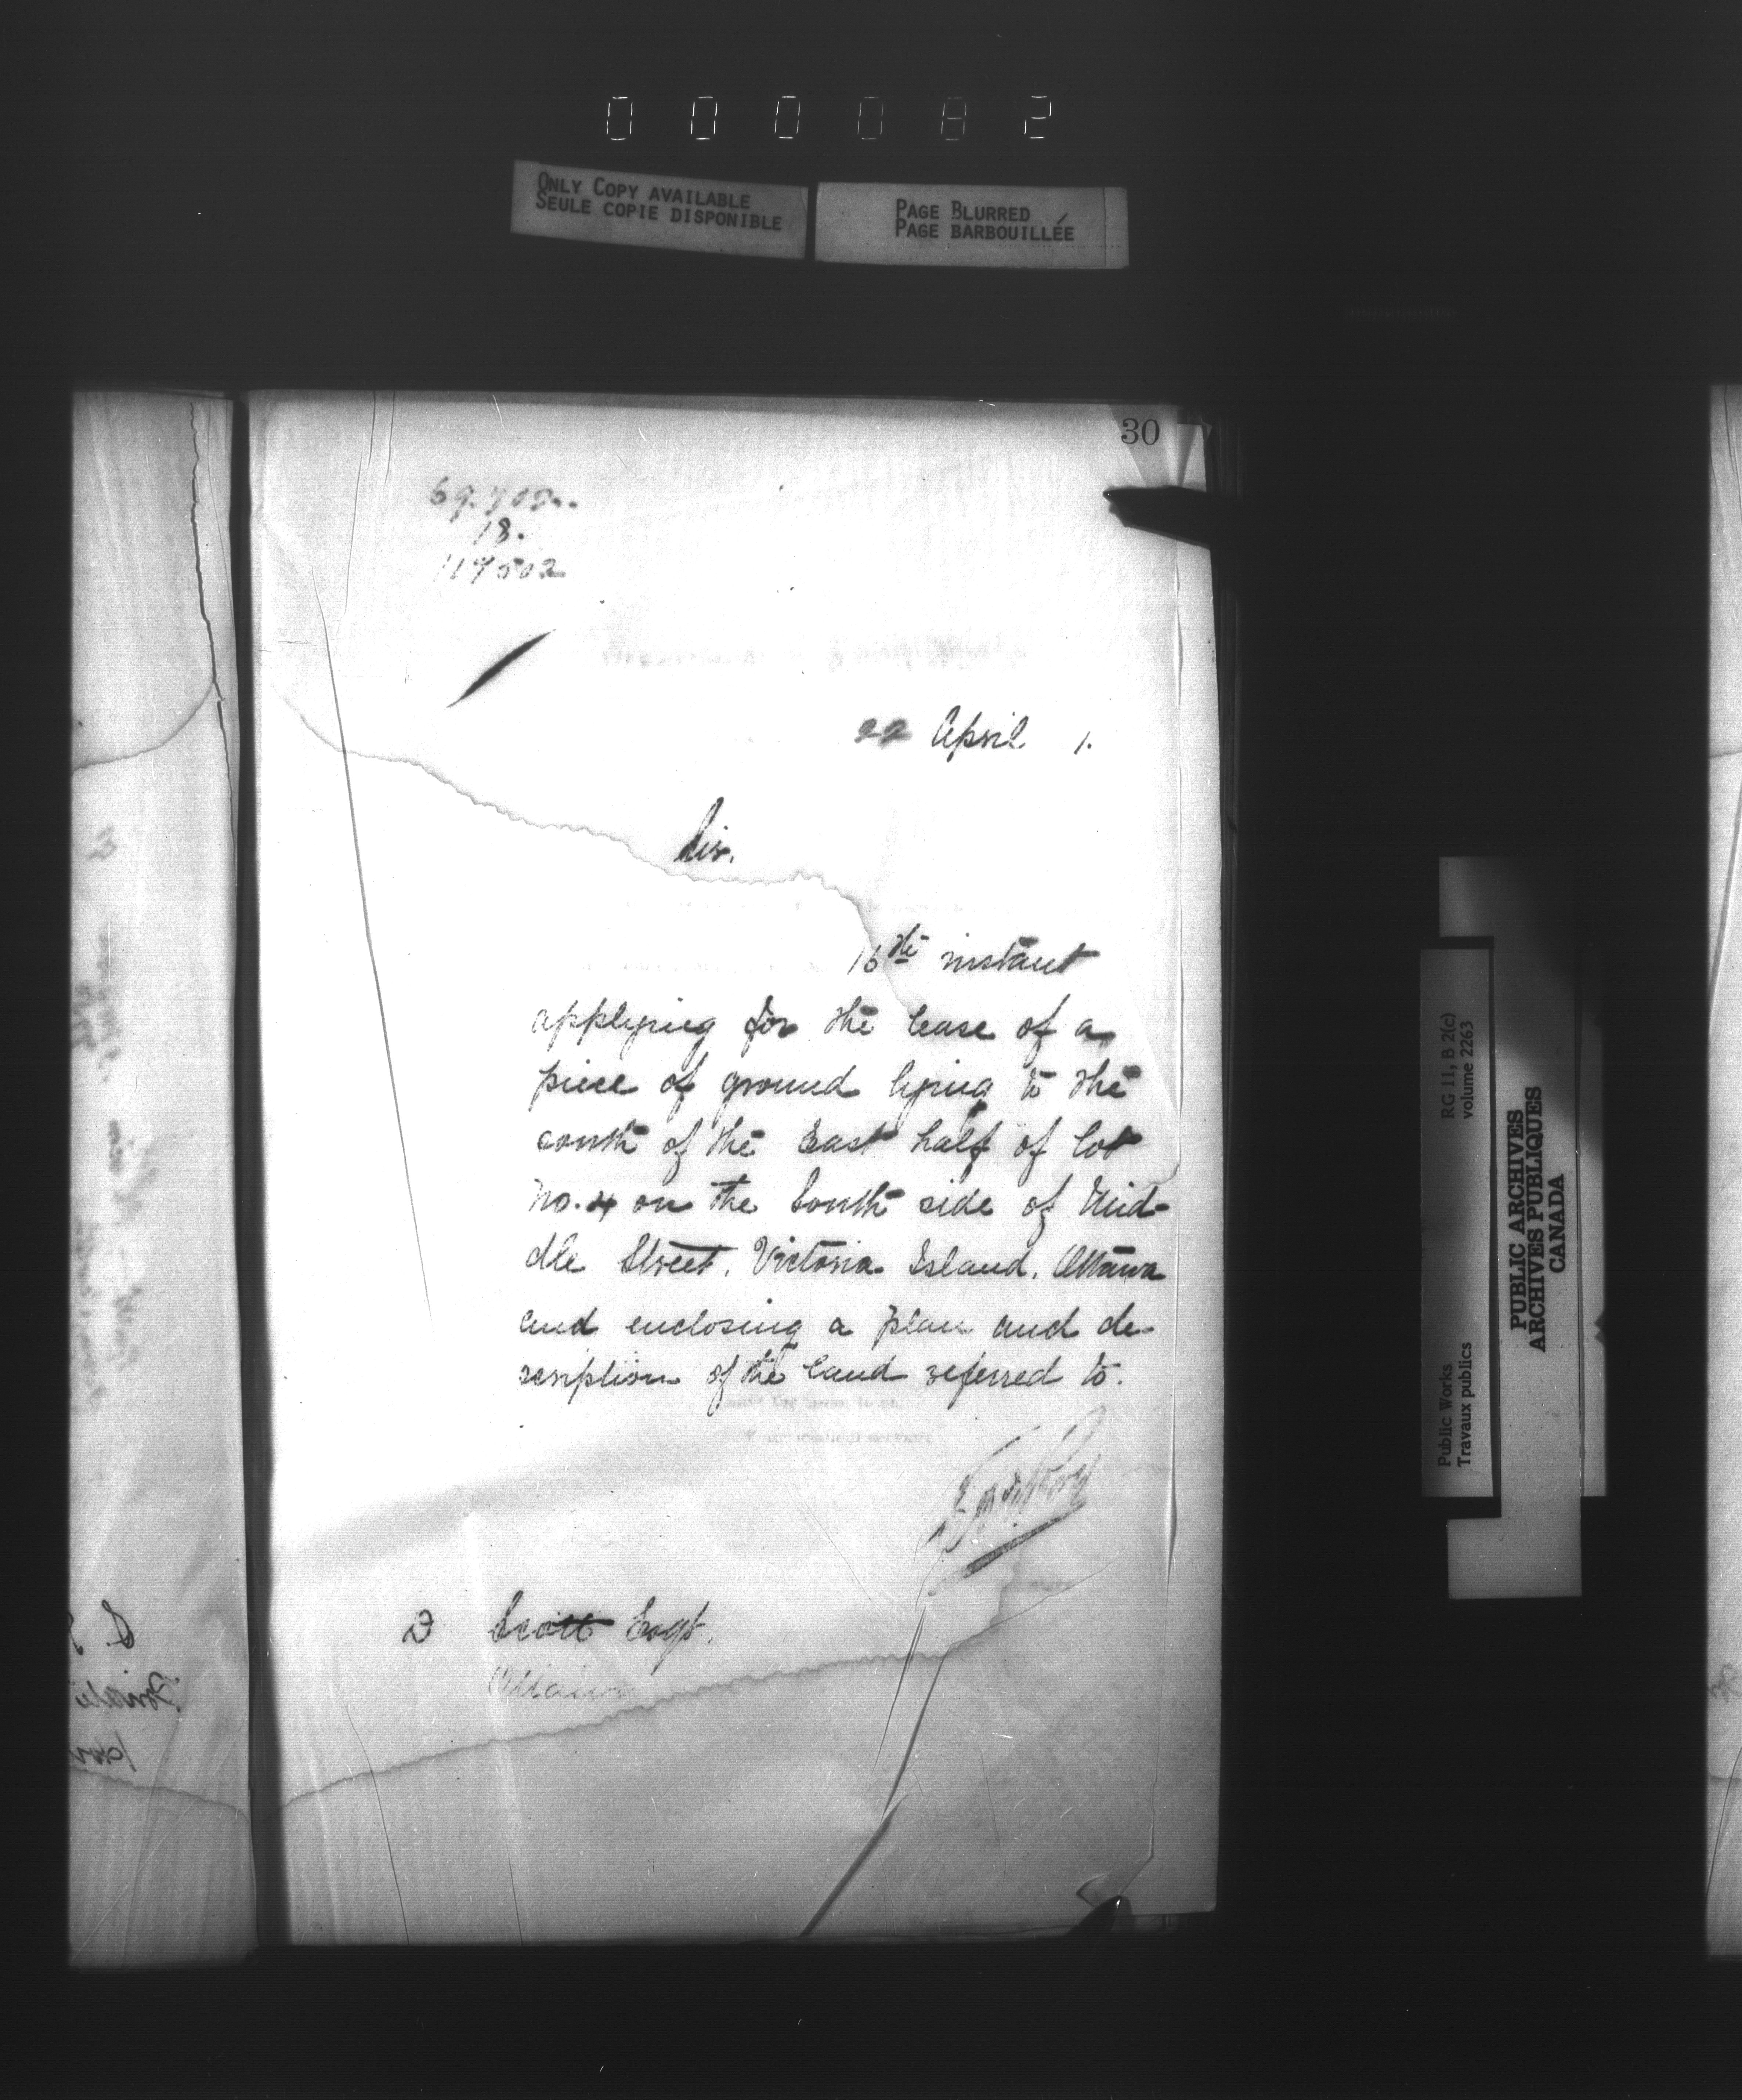 000082
ONLY COPY AVAILABLE
SEULE COPIE DISPONIBLE
PAGE BLURRED
PAGE BARBOUILLÉE
30
18.
117502
22 April 1.
Sir,
16th instant
applying for the lease of a
piece of ground lying to the
south of the East half of lot
No. 4 on the South side of Mid-
dle Street, Victoria Island, Ottawa
and enclosing a plan and de-
scription of the land referred to.
D Scott Esqr.
Ottawa
Public Works
Travaux publics
RG 11, B 2(c)
volume 2263
PUBLIC ARCHIVES
ARCHIVES PUBLIQUES
CANADA